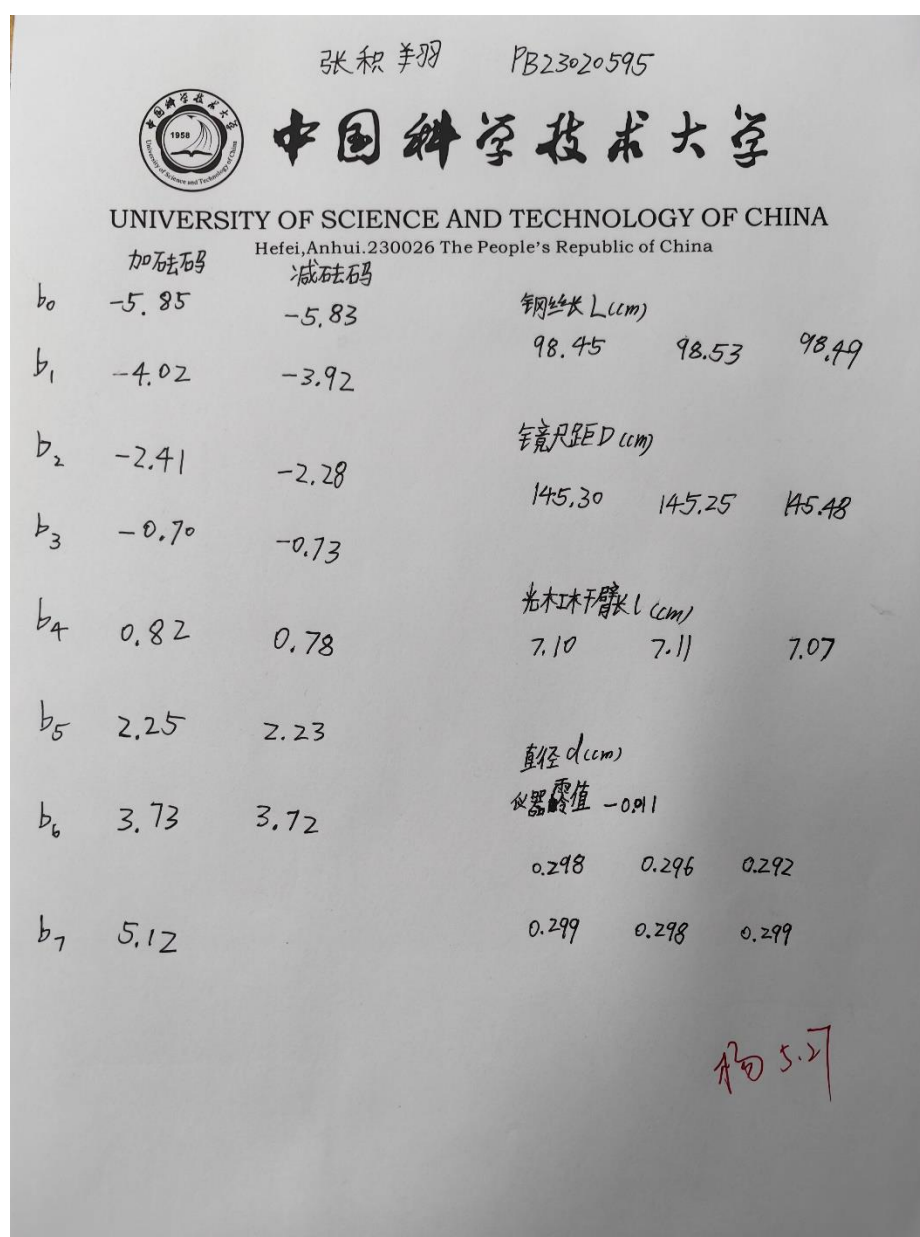 张积翔 PB23020595
中国科学技术大学
1958
University of Science and Technology of China
UNIVERSITY OF SCIENCE AND TECHNOLOGY OF CHINA
Hefei,Anhui.230026 The People's Republic of China
加砝码 减砝码
b₀ -5.85 -5.83
b₁ -4.02 -3.92
b₂ -2.41 -2.28
b₃ -0.70 -0.73
b₄ 0.82 0.78
b₅ 2.25 2.23
b₆ 3.73 3.72
b₇ 5.12
钢丝长L(cm)
98.45 98.53 98.49
镜尺距D(cm)
145.30 145.25 145.48
光杠杆臂长l(cm)
7.10 7.11 7.07
直径d(cm)
仪器零值 -0.011
0.298 0.296 0.292
0.299 0.298 0.299
杨 5.27